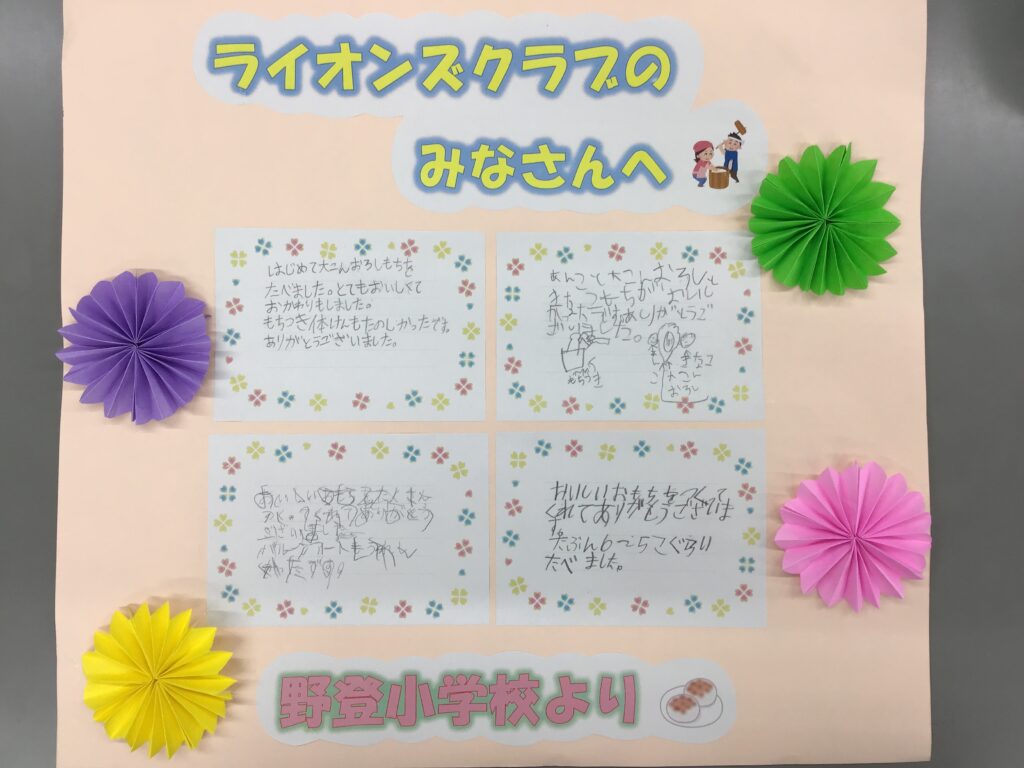 ライオンズクラブの
みなさんへ
はじめて大こんおろしもちを
たべました。とてもおいしくて
おかわりもしました。
もちつき体けんもたのしかったです。
ありがとうございました。
あんこと大こんおろしと
ありがとうご
ざいました。
もちつき
きなこ
だいこん
おろし
おいしいおもちをたくさん
つくってくれてありがとう
ございました。
バルーンアートも
たです。
おいしいおもちをつくって
くれてありがとうございま
す。
たぶん6こ
ぐらい
たべました。
野登小学校より